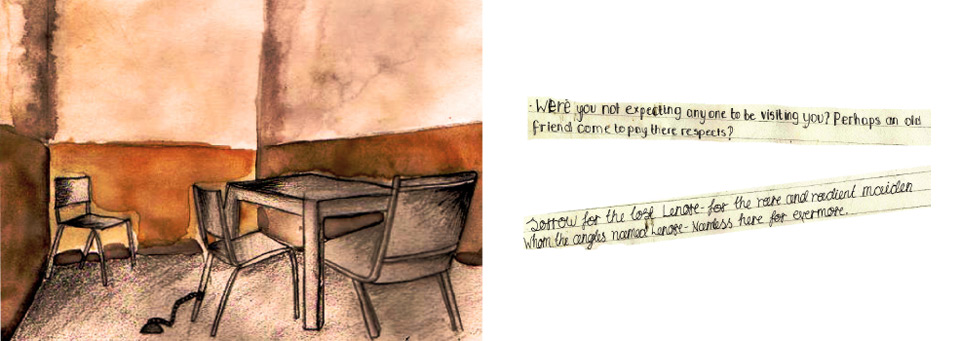 · Were you not expecting anyone to be visiting you? Perhaps an old
friend come to pay there respects?
Sorrow for the lost Lenore- for the rare and radient maiden
Whom the angles named Lenore- Namless here for evermore.